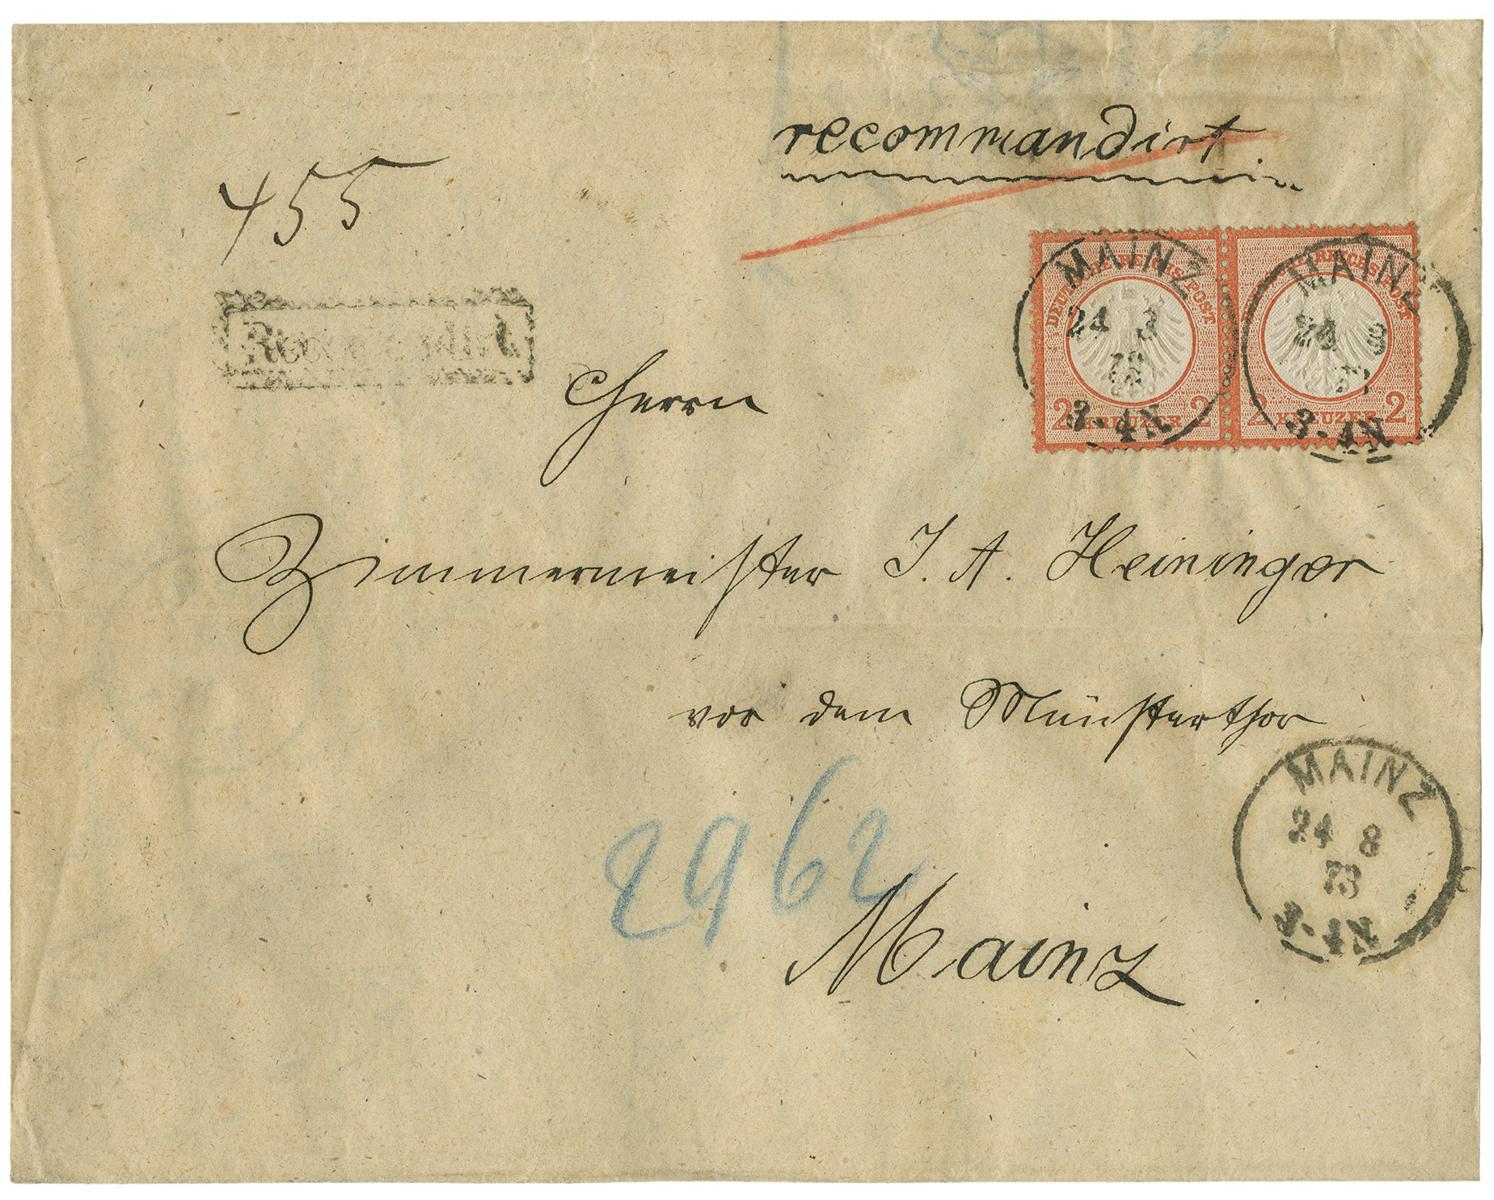 recommandirt
455
MAINZ
24 8
73
3-4N
DEUTSCHE REICHS-POST
2 KREUZER 2
MAINZ
24 8
73
3-4N
DEUTSCHE REICHS-POST
2 KREUZER 2
Herrn
Zimmermeister J. A. Heininger
vor dem Münsterthor
2962
Mainz
MAINZ
24 8
73
3-4N